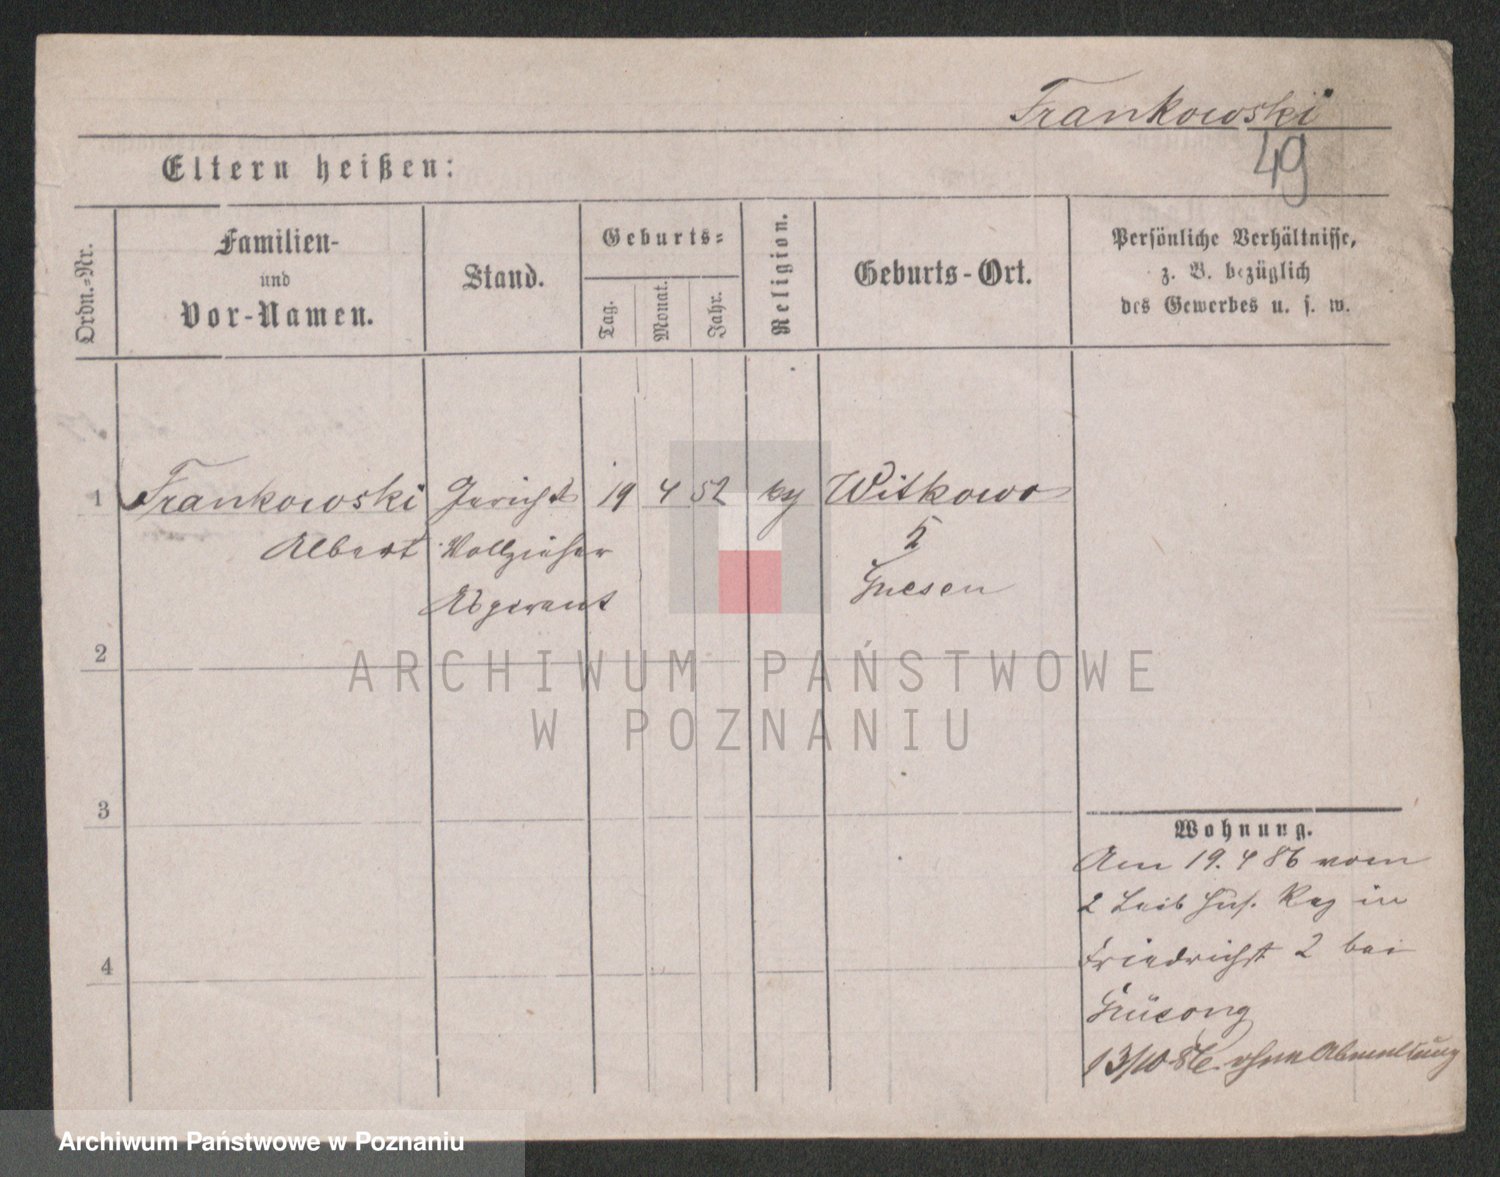 Frankowski
49
Eltern heißen:
Ordn.-Nr.
Familien-
und
Vor-Namen.
Stand.
Geburts-
Tag.
Monat.
Jahr.
Religion.
Geburts-Ort.
Persönliche Verhältnisse,
z. B. bezüglich
des Gewerbes u. s. w.
1 Frankowski Gericht 19 4 52 Witkowo
Albert Vollzieher
Gnesen
2
ARCHIWUM PAŃSTWOWE
W POZNANIU
3
Wohnung.
Am 19. 4 86 vom
2 Leib Hus. Reg in
4
Friedrichst 2 bei
13/10 86. ohne Abmeldung
Archiwum Państwowe w Poznaniu